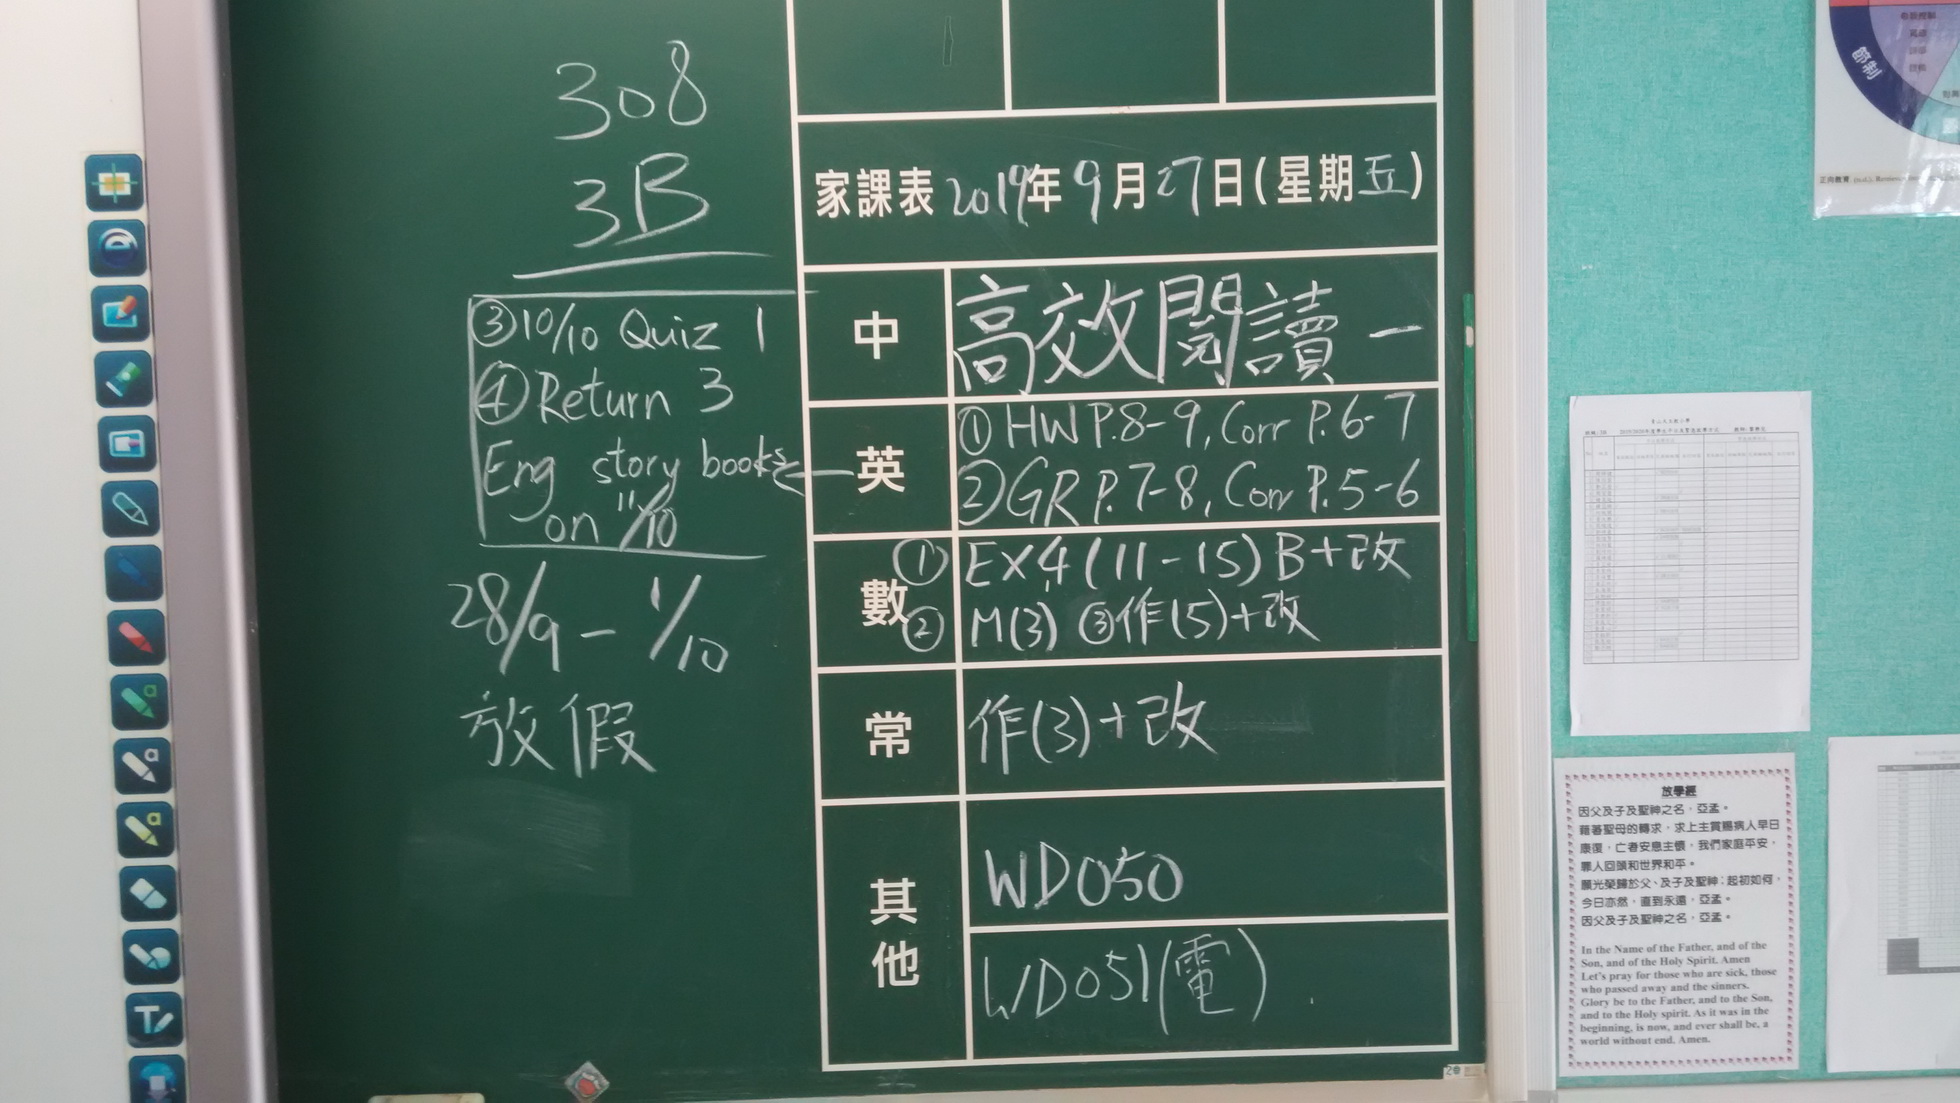 308
3B
③10/10 Quiz 1
④Return 3
Eng story books
on 11/10
28/9 - 1/10
放假
家課表 2019年9月27日(星期五)
中
高效閱讀一
英
①HW P.8-9, Corr P.6-7
②GR P.7-8, Corr P.5-6
數
① EX4(11-15)B+改
② M(3) ③作(5)+改
常
作(3)+改
其他
WD050
WD051(電)
節制
放學經
因父及子及聖神之名，亞孟。
藉著聖母的轉求，求上主賞賜病人早日
康復，亡者安息主懷，我們家庭平安，
罪人回頭和世界和平。
願光榮歸於父、及子及聖神；起初如何，
今日亦然，直到永遠，亞孟。
因父及子及聖神之名，亞孟。
In the Name of the Father, and of the
Son, and of the Holy Spirit. Amen
Let's pray for those who are sick, those
who passed away and the sinners.
Glory be to the Father, and to the Son,
and to the Holy spirit. As it was in the
beginning, is now, and ever shall be, a
world without end. Amen.